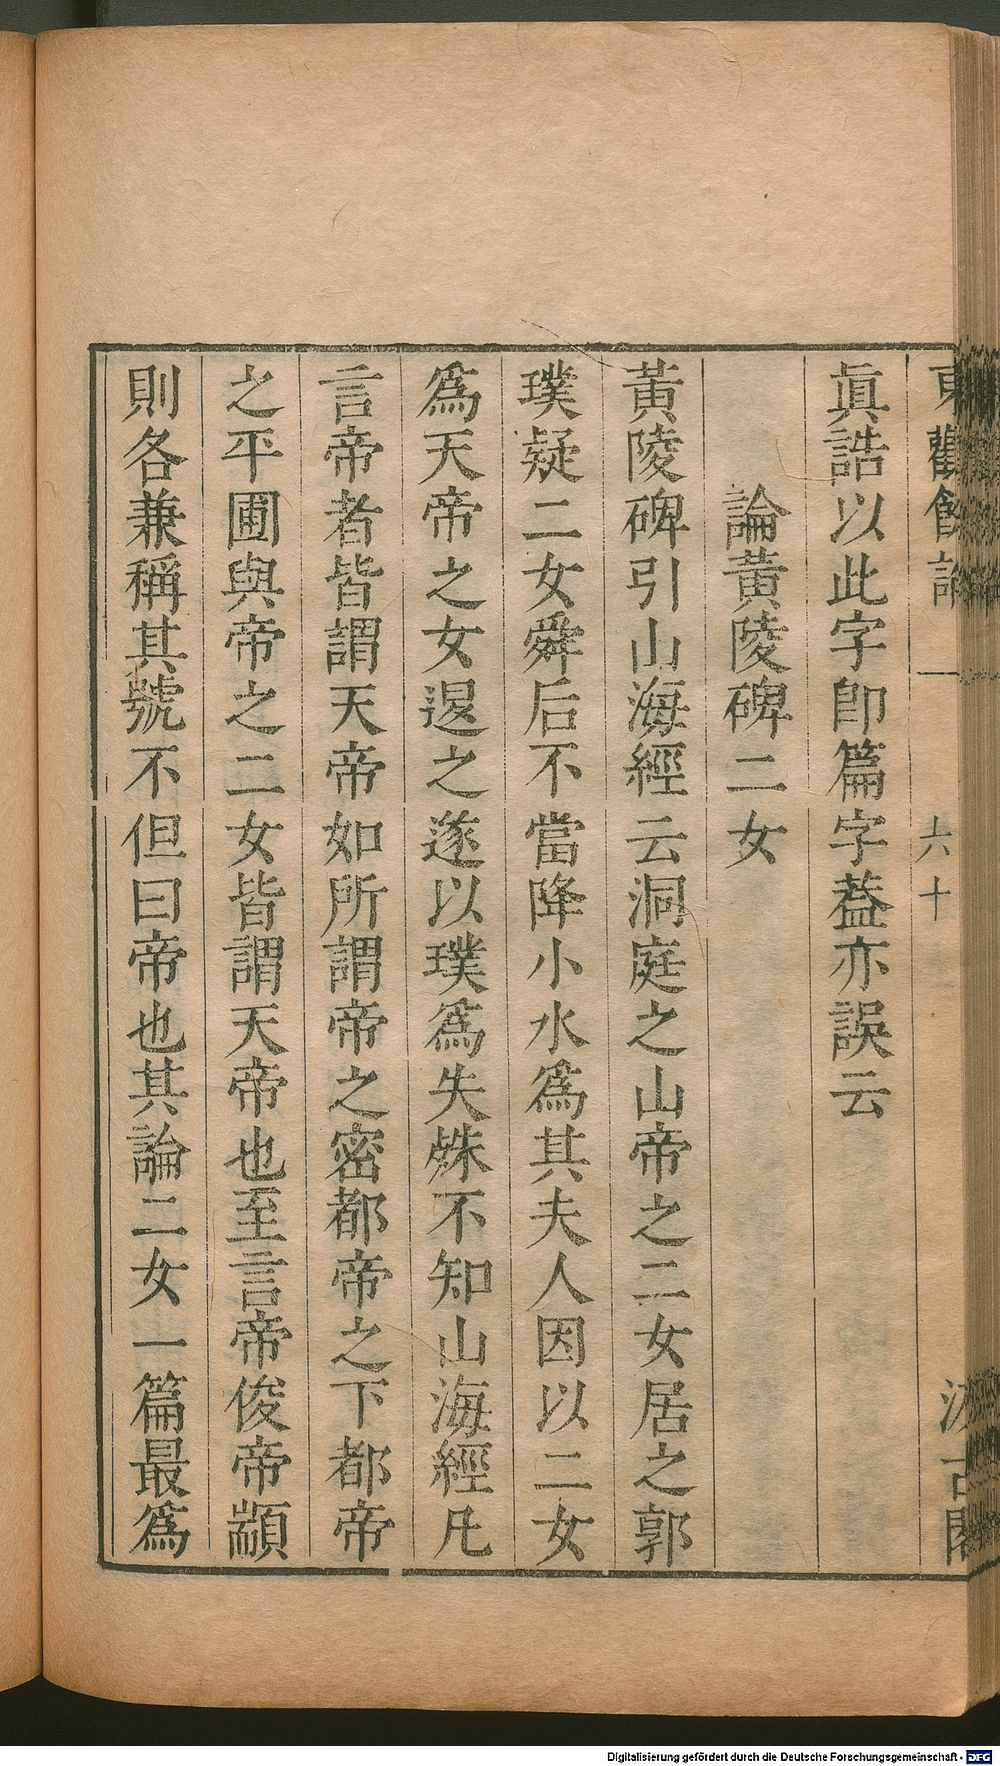 東觀餘論　一　六十　汲古閣
眞誥以此字卽篇字葢亦誤云
論黃陵碑二女
黃陵碑引山海經云洞庭之山帝之二女居之郭
璞疑二女舜后不當降小水爲其夫人因以二女
爲天帝之女退之遂以璞爲失殊不知山海經凡
言帝者皆謂天帝如所謂帝之密都帝之下都帝
之平圃與帝之二女皆謂天帝也至言帝俊帝顓
則各兼稱其號不但曰帝也其論二女一篇最爲
Digitalisierung gefördert durch die Deutsche Forschungsgemeinschaft - DFG